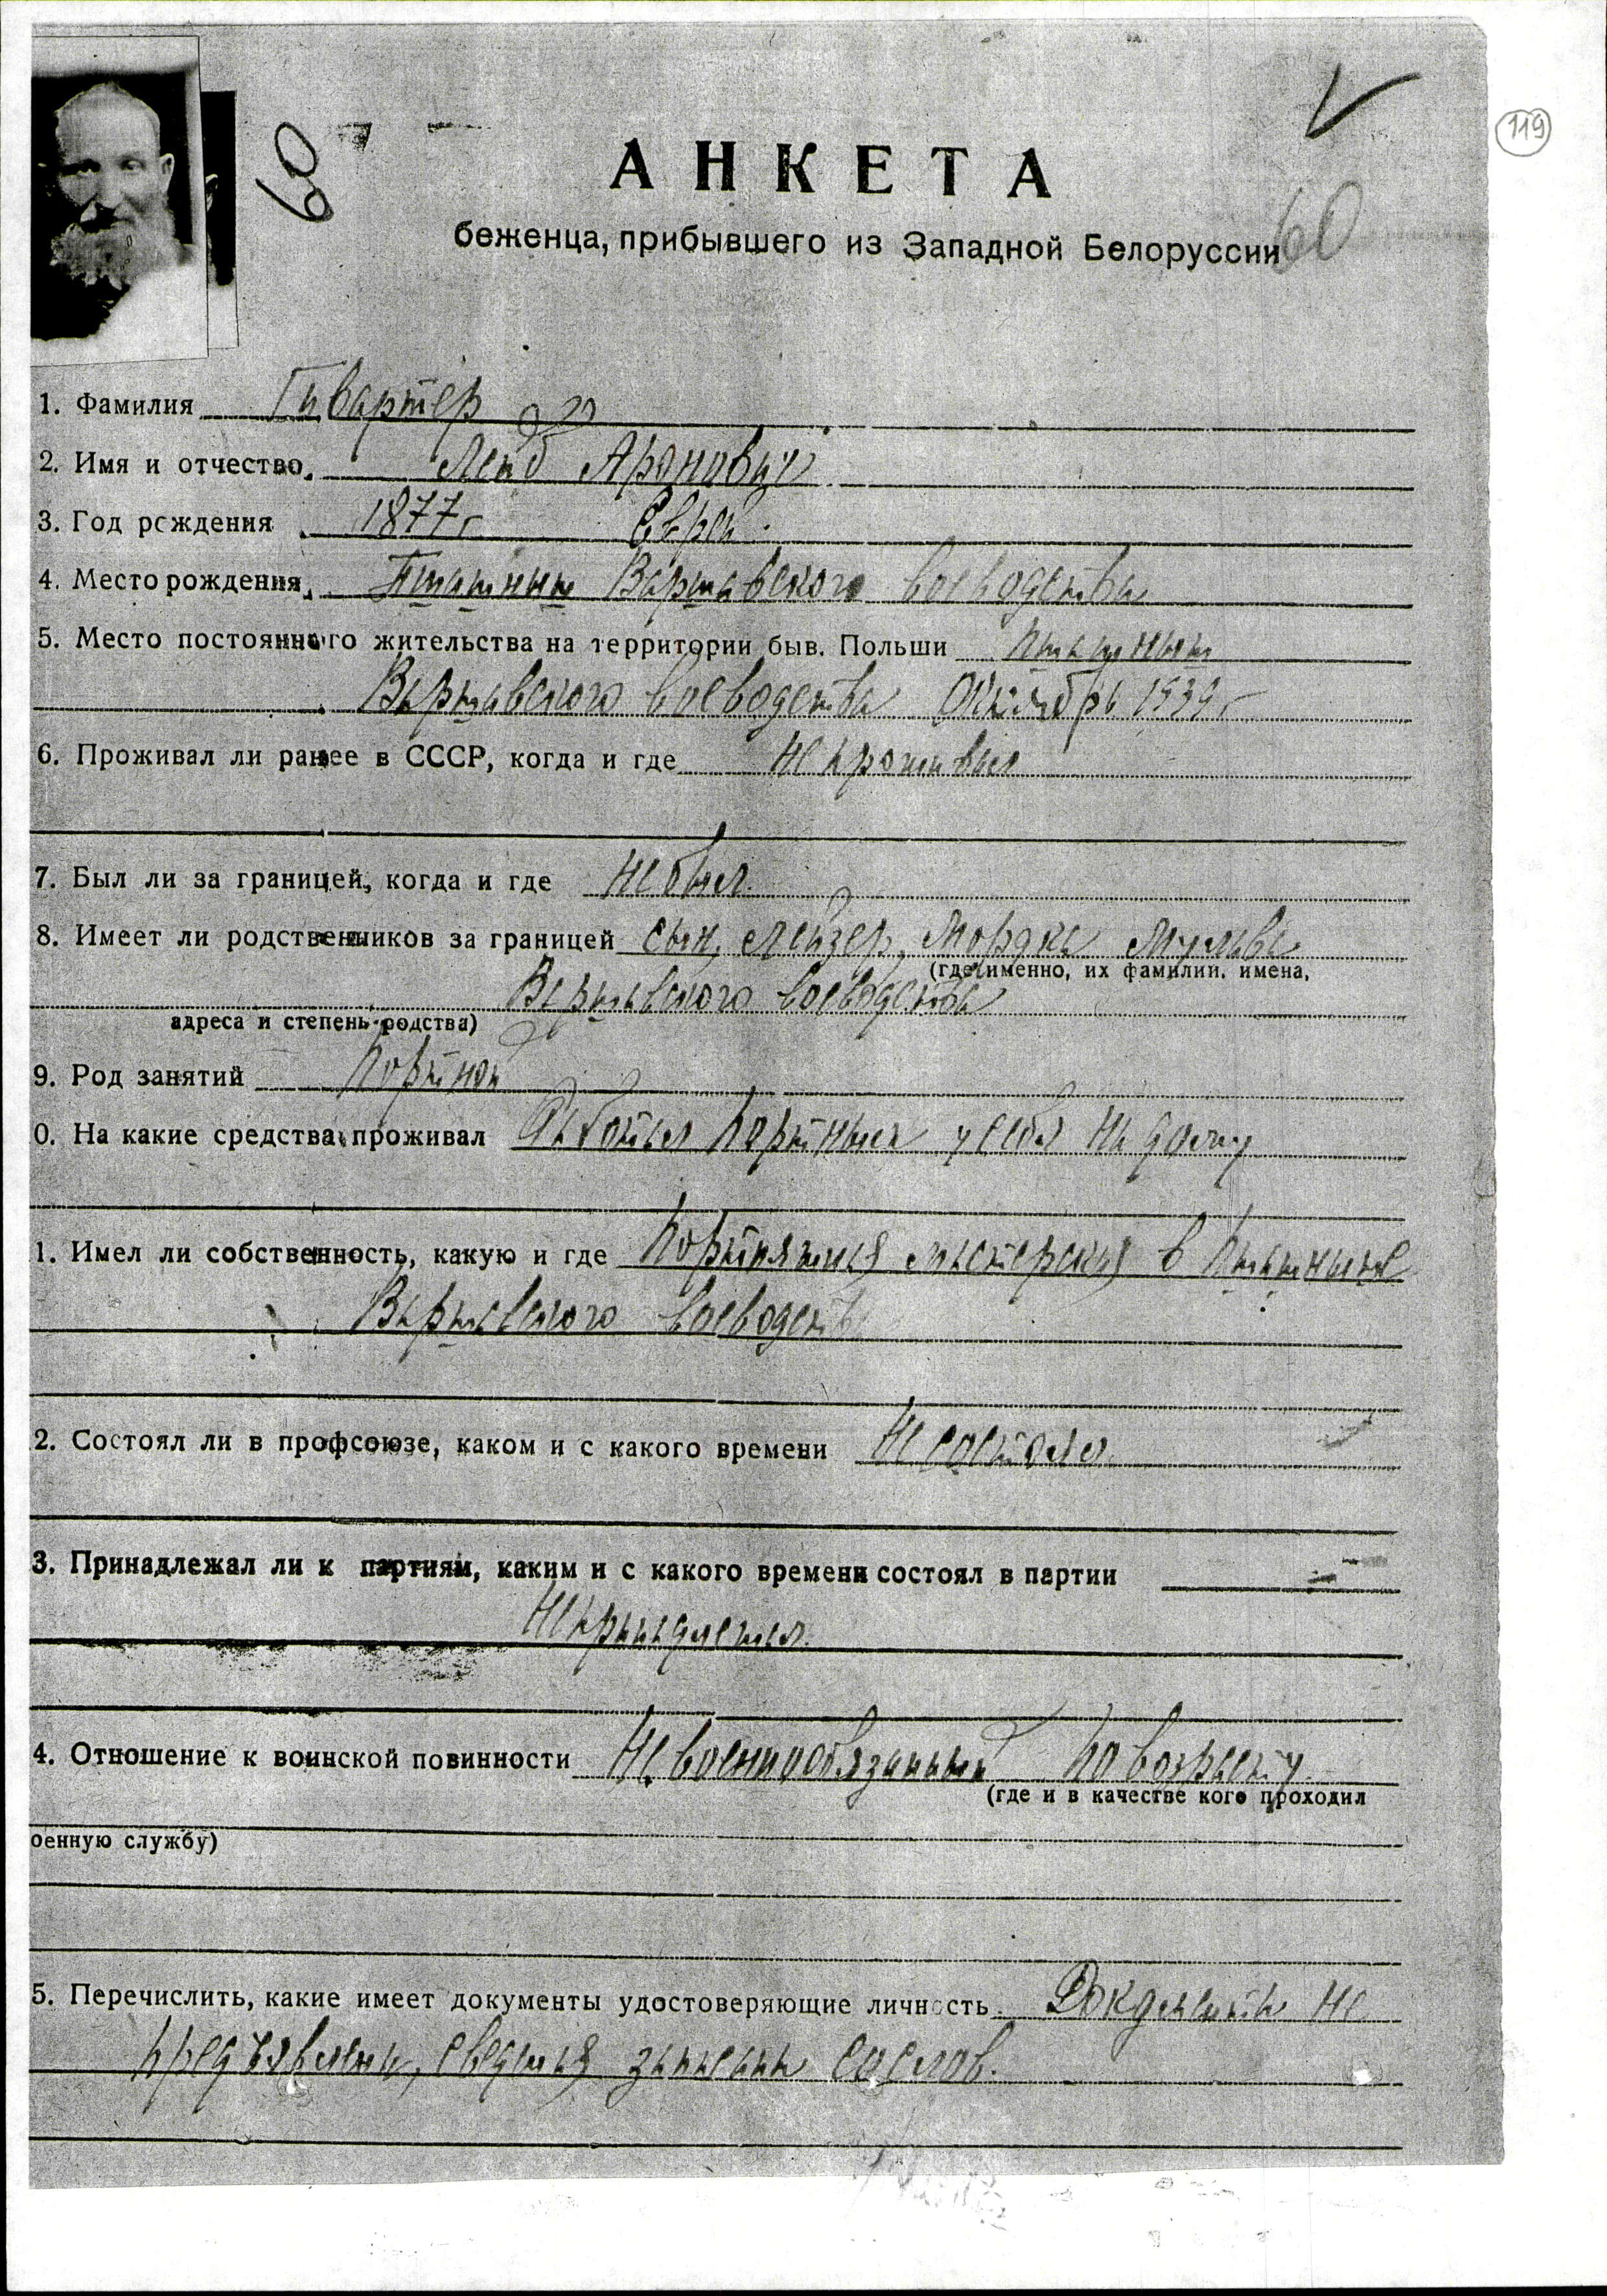 119
60
АНКЕТА
60
беженца, прибывшего из Западной Белоруссии
1. Фамилия Гивартер
2. Имя и отчество. Лейб Аронович
3. Год рождения 1877 г Еврей.
4. Место рождения. Варшавского воеводства
5. Место постоянного жительства на территории быв. Польши
Варшавского воеводства Октябрь 1939 г
6. Проживал ли ранее в СССР, когда и где не проживал
7. Был ли за границей, когда и где не был.
8. Имеет ли родственников за границей сын, Лейзер, Мордка
(где именно, их фамилии, имена,
Варшавского воеводства
адреса и степень родства)
9. Род занятий портной
0. На какие средства проживал Работал портным у себя на дому
1. Имел ли собственность, какую и где мастерская в
Варшавского воеводства
2. Состоял ли в профсоюзе, каком и с какого времени Не состоял.
3. Принадлежал ли к партиям, каким и с какого времени состоял в партии
Не принадлежал.
4. Отношение к воинской повинности Не военнообязанный по возрасту.
(где и в качестве кого проходил
оенную службу)
5. Перечислить, какие имеет документы удостоверяющие личность. Документы не
предъявлены, сведения записаны со слов.